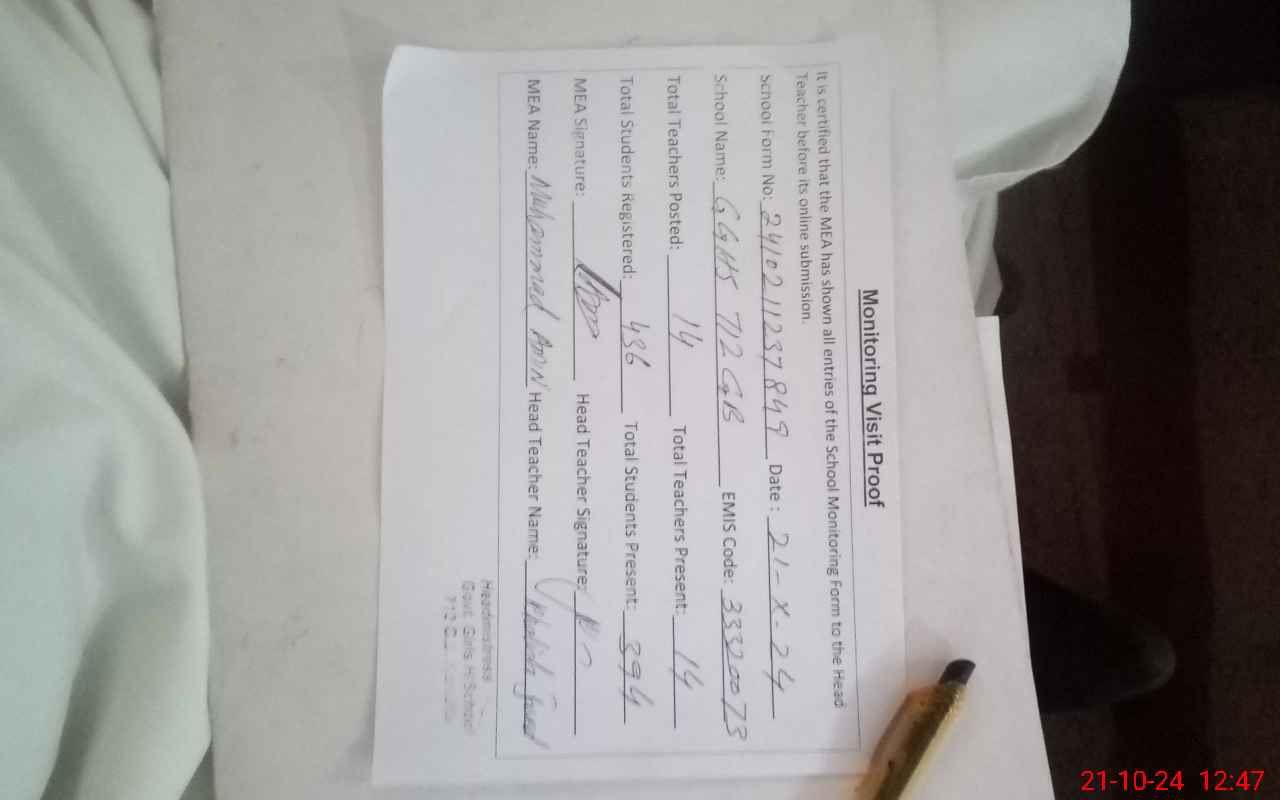 Monitoring Visit Proof
It is certified that the MEA has shown all entries of the School Monitoring Form to the Head
Teacher before its online submission.
School Form No: 2410211237849 Date: 21-X-24
School Name: GGHS 712 GB EMIS Code: 33320073
Total Teachers Posted: 14 Total Teachers Present: 14
Total Students Registered: 436 Total Students Present: 394
MEA Signature: Head Teacher Signature:
MEA Name: Muhammad Amin Head Teacher Name:
Headmistress
Govt. Girls. H. School
712 G.
21-10-24 12:47